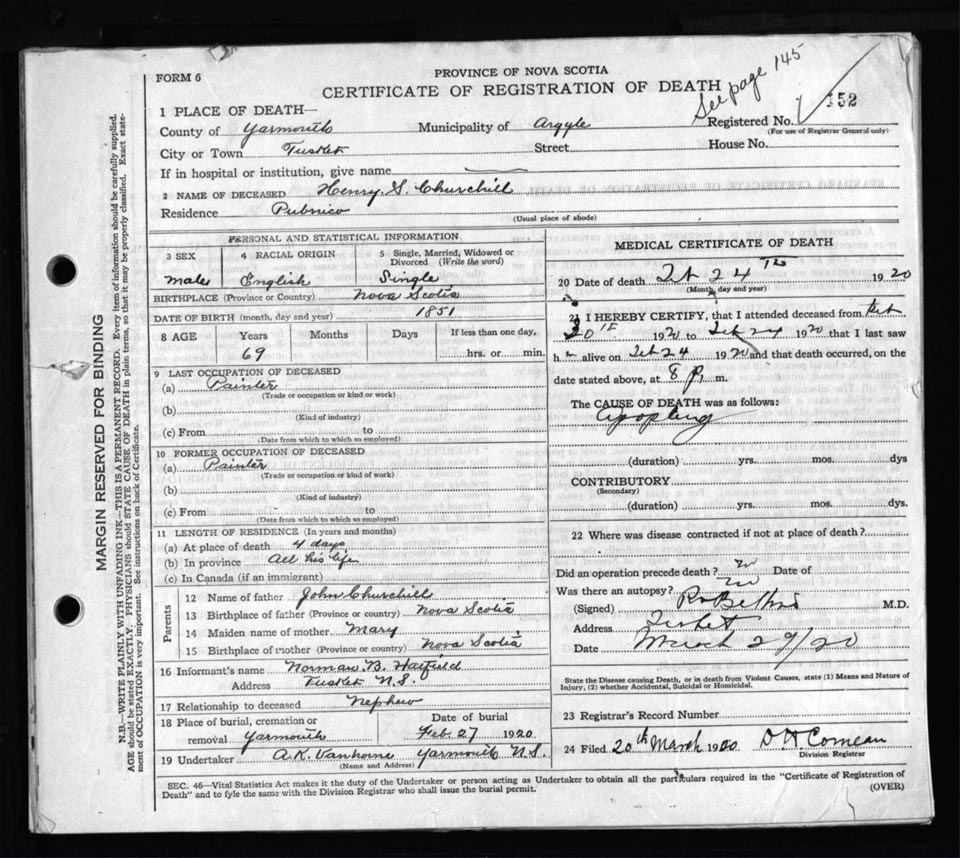 FORM 6
PROVINCE OF NOVA SCOTIA
CERTIFICATE OF REGISTRATION OF DEATH
See page 145
152
1 PLACE OF DEATH—
County of Yarmouth Municipality of Argyle Registered No.
(For use of Registrar General only)
City or Town Tusket Street House No.
If in hospital or institution, give name
2 NAME OF DECEASED Henry S. Churchill
Residence Pubnico
(Usual place of abode)
PERSONAL AND STATISTICAL INFORMATION
3 SEX
male
4 RACIAL ORIGIN
English
5 Single, Married, Widowed or
Divorced (Write the word)
Single
BIRTHPLACE (Province or Country) Nova Scotia
DATE OF BIRTH (month, day and year) 1851
8 AGE Years Months Days If less than one day,
69 hrs. or min.
9 LAST OCCUPATION OF DECEASED
(a) Painter
(Trade or occupation or kind or work)
(b)
(Kind of industry)
(c) From to
(Date from which to which so employed)
10 FORMER OCCUPATION OF DECEASED
(a) Painter
(Trade or occupation or kind of work)
(b)
(Kind of industry)
(c) From to
(Date from which to which so employed)
11 LENGTH OF RESIDENCE (In years and months)
(a) At place of death 4 days
(b) In province all his life
(c) In Canada (if an immigrant)
Parents
12 Name of father John Churchill
13 Birthplace of father (Province or country) Nova Scotia
14 Maiden name of mother Mary
15 Birthplace of mother (Province or country) Nova Scotia
16 Informant's name Norman B. Hatfield
Address Tusket N.S.
17 Relationship to deceased nephew
18 Place of burial, cremation or
removal Yarmouth
Date of burial
Feb. 27 1920
19 Undertaker A.K. Vanhorne Yarmouth N.S.
(Name and Address)
MEDICAL CERTIFICATE OF DEATH
20 Date of death Feb 24 th 1920
(Month, day and year)
21 I HEREBY CERTIFY, that I attended deceased from Feb
20 th 1920 to Feb 24 1920 that I last saw
h m alive on Feb 24 1920 and that death occurred, on the
date stated above, at 8 p. m.
The CAUSE OF DEATH was as follows:
(duration) yrs. mos. dys
CONTRIBUTORY
(Secondary)
(duration) yrs. mos. dys.
22 Where was disease contracted if not at place of death?
Did an operation precede death? no Date of
Was there an autopsy? no
(Signed) M.D.
Address Tusket
Date March 29/20
State the Disease causing Death, or in death from Violent Causes, state (1) Means and Nature of
Injury, (2) whether Accidental, Suicidal or Homicidal.
23 Registrar's Record Number
24 Filed 20th March 1920 D H Comeau
Division Registrar
SEC. 46—Vital Statistics Act makes it the duty of the Undertaker or person acting as Undertaker to obtain all the particulars required in the "Certificate of Registration of
Death" and to fyle the same with the Division Registrar who shall issue the burial permit.
(OVER)
MARGIN RESERVED FOR BINDING
N.B.—WRITE PLAINLY WITH UNFADING INK—THIS IS A PERMANENT RECORD. Every item of information should be carefully supplied.
AGE should be stated EXACTLY. PHYSICIANS should STATE CAUSE OF DEATH in plain terms, so that it may be properly classified. Exact state-
ment of OCCUPATION is very important. See instructions on back of Certificate.